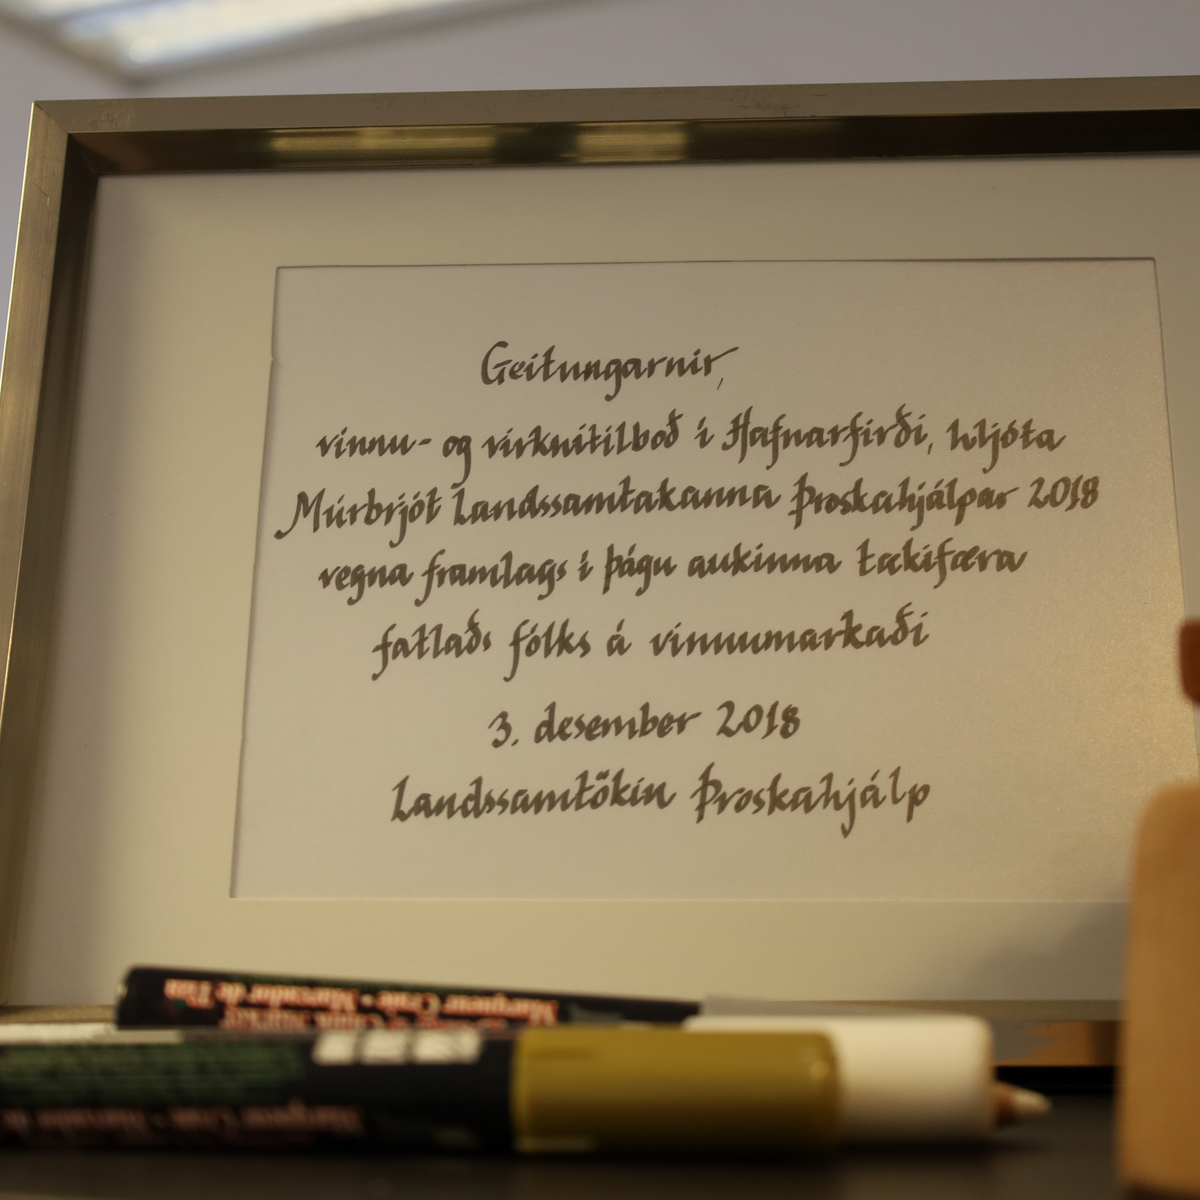 Geitungarnir,
vinnu- og virknitilboð í Hafnarfirði, hljóta
Múrbrjót Landssamtakanna Þroskahjálpar 2018
vegna framlags í þágu aukinna tækifæra
fatlaðs fólks á vinnumarkaði
3. desember 2018
Landssamtökin Þroskahjálp
Marqueur Craie • Marcador de Tiza
Marqueur Craie • Marcador de